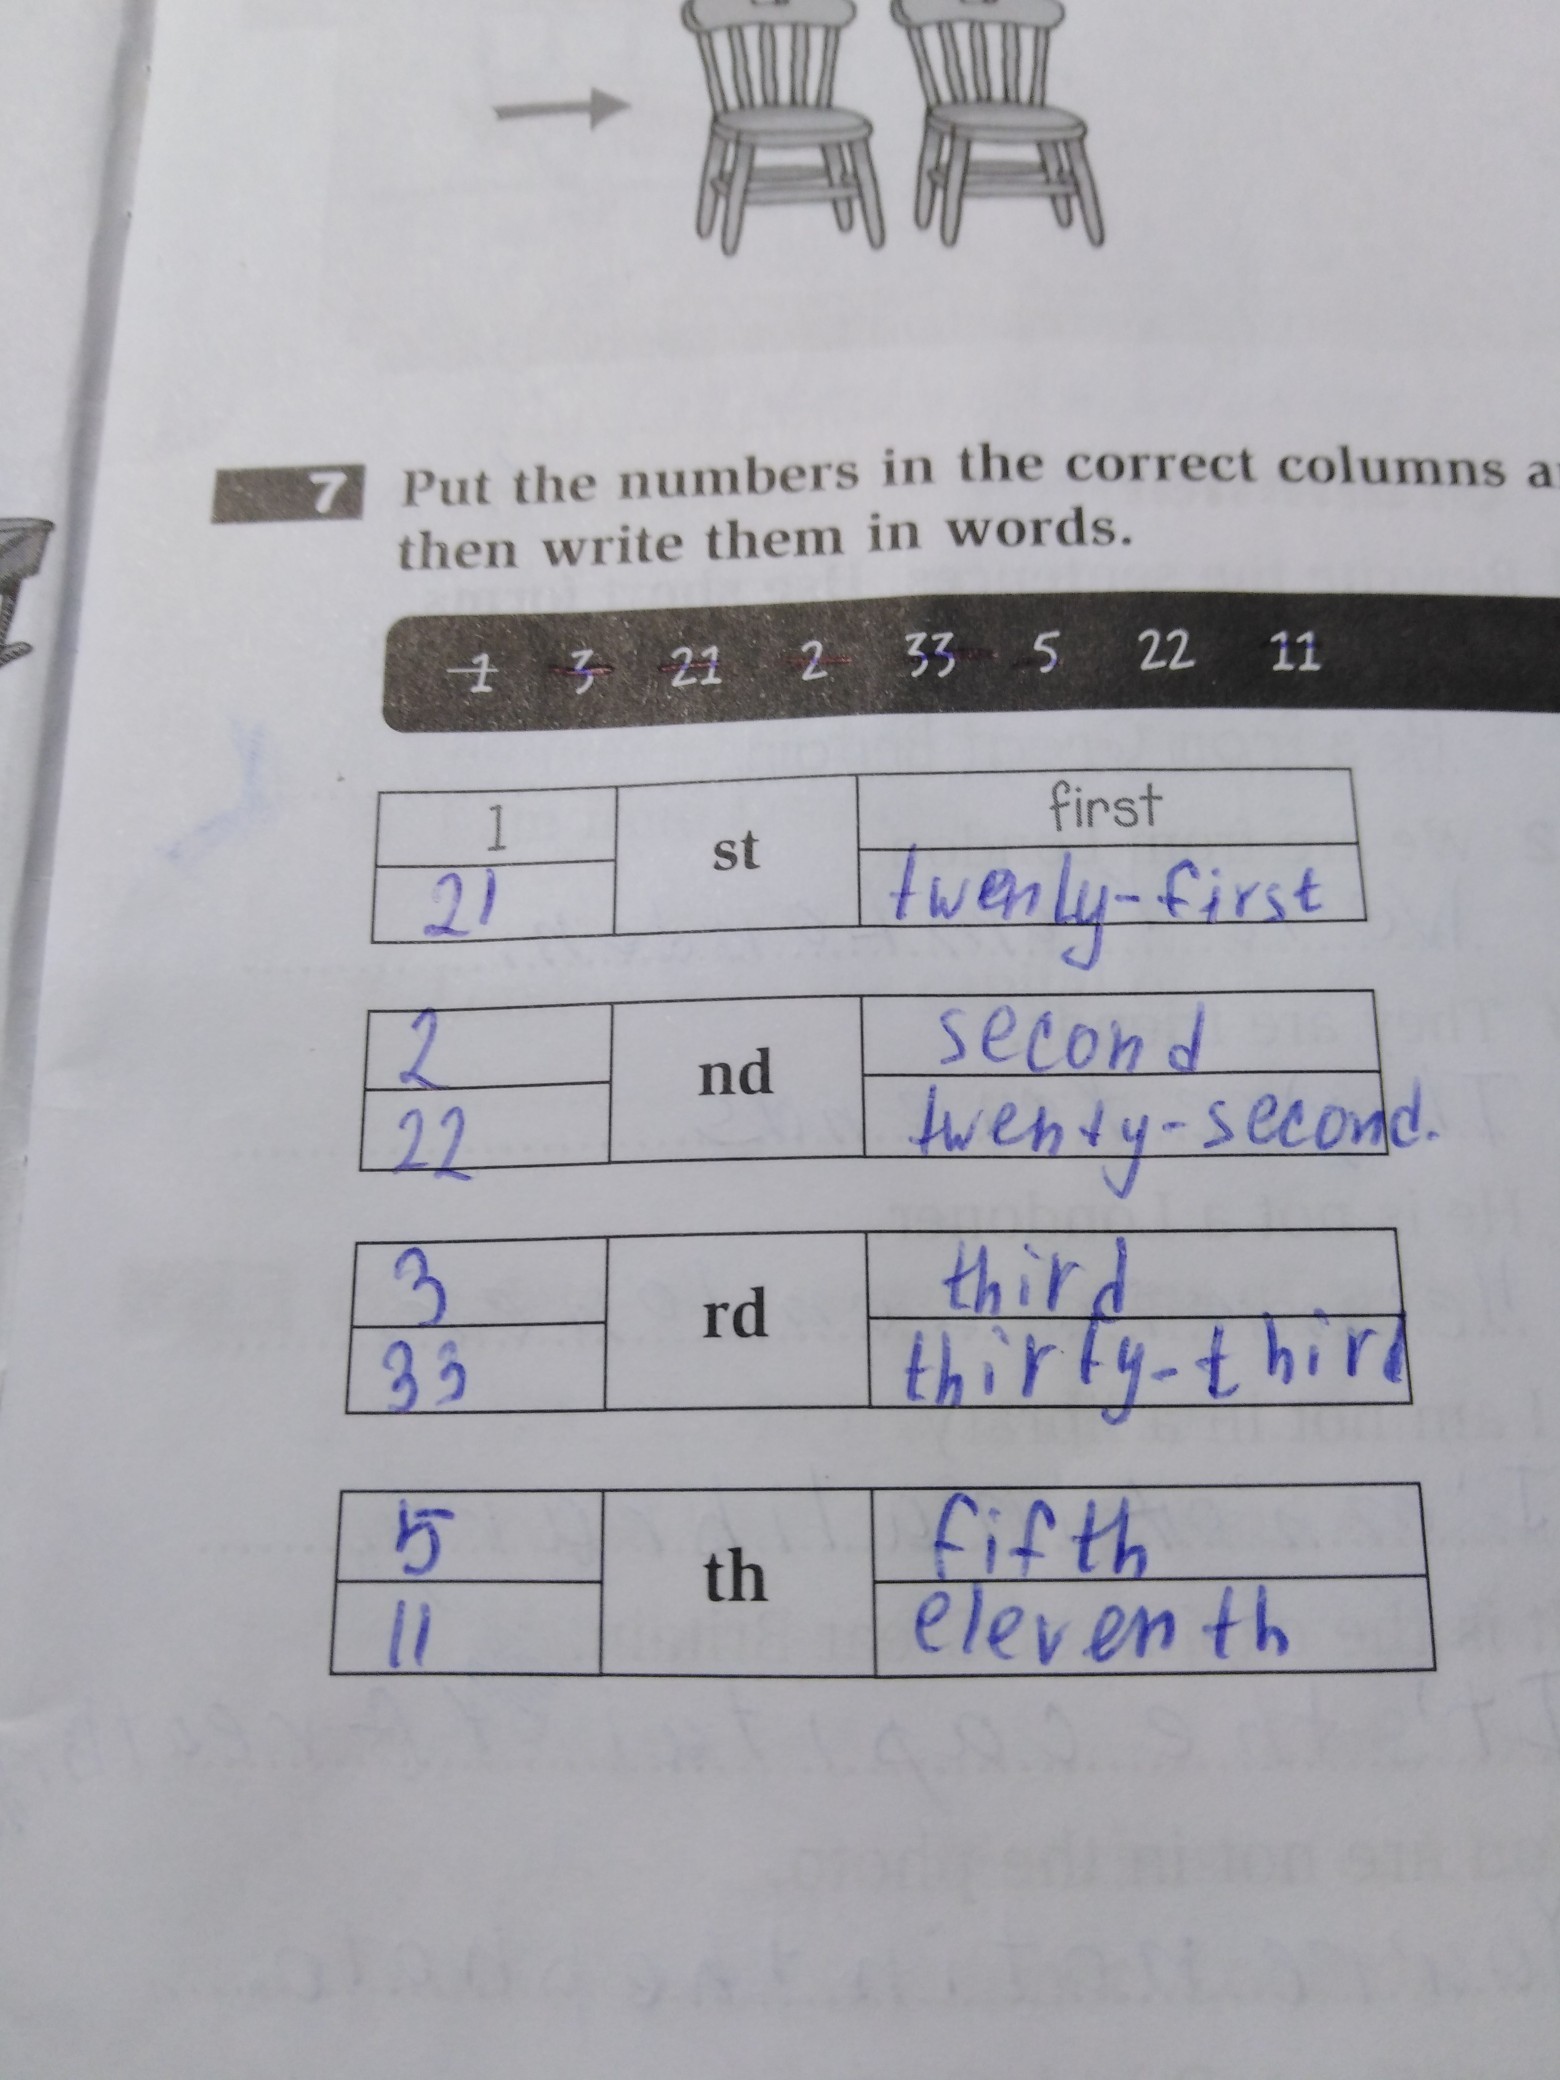 7 Put the numbers in the correct columns
then write them in words.
1 3 21 2 33 5 22 11
1 st first
21 twenty-first
2 nd second
22 twenty-second.
3 rd third
33 thirty-third
5 th fifth
11 eleventh